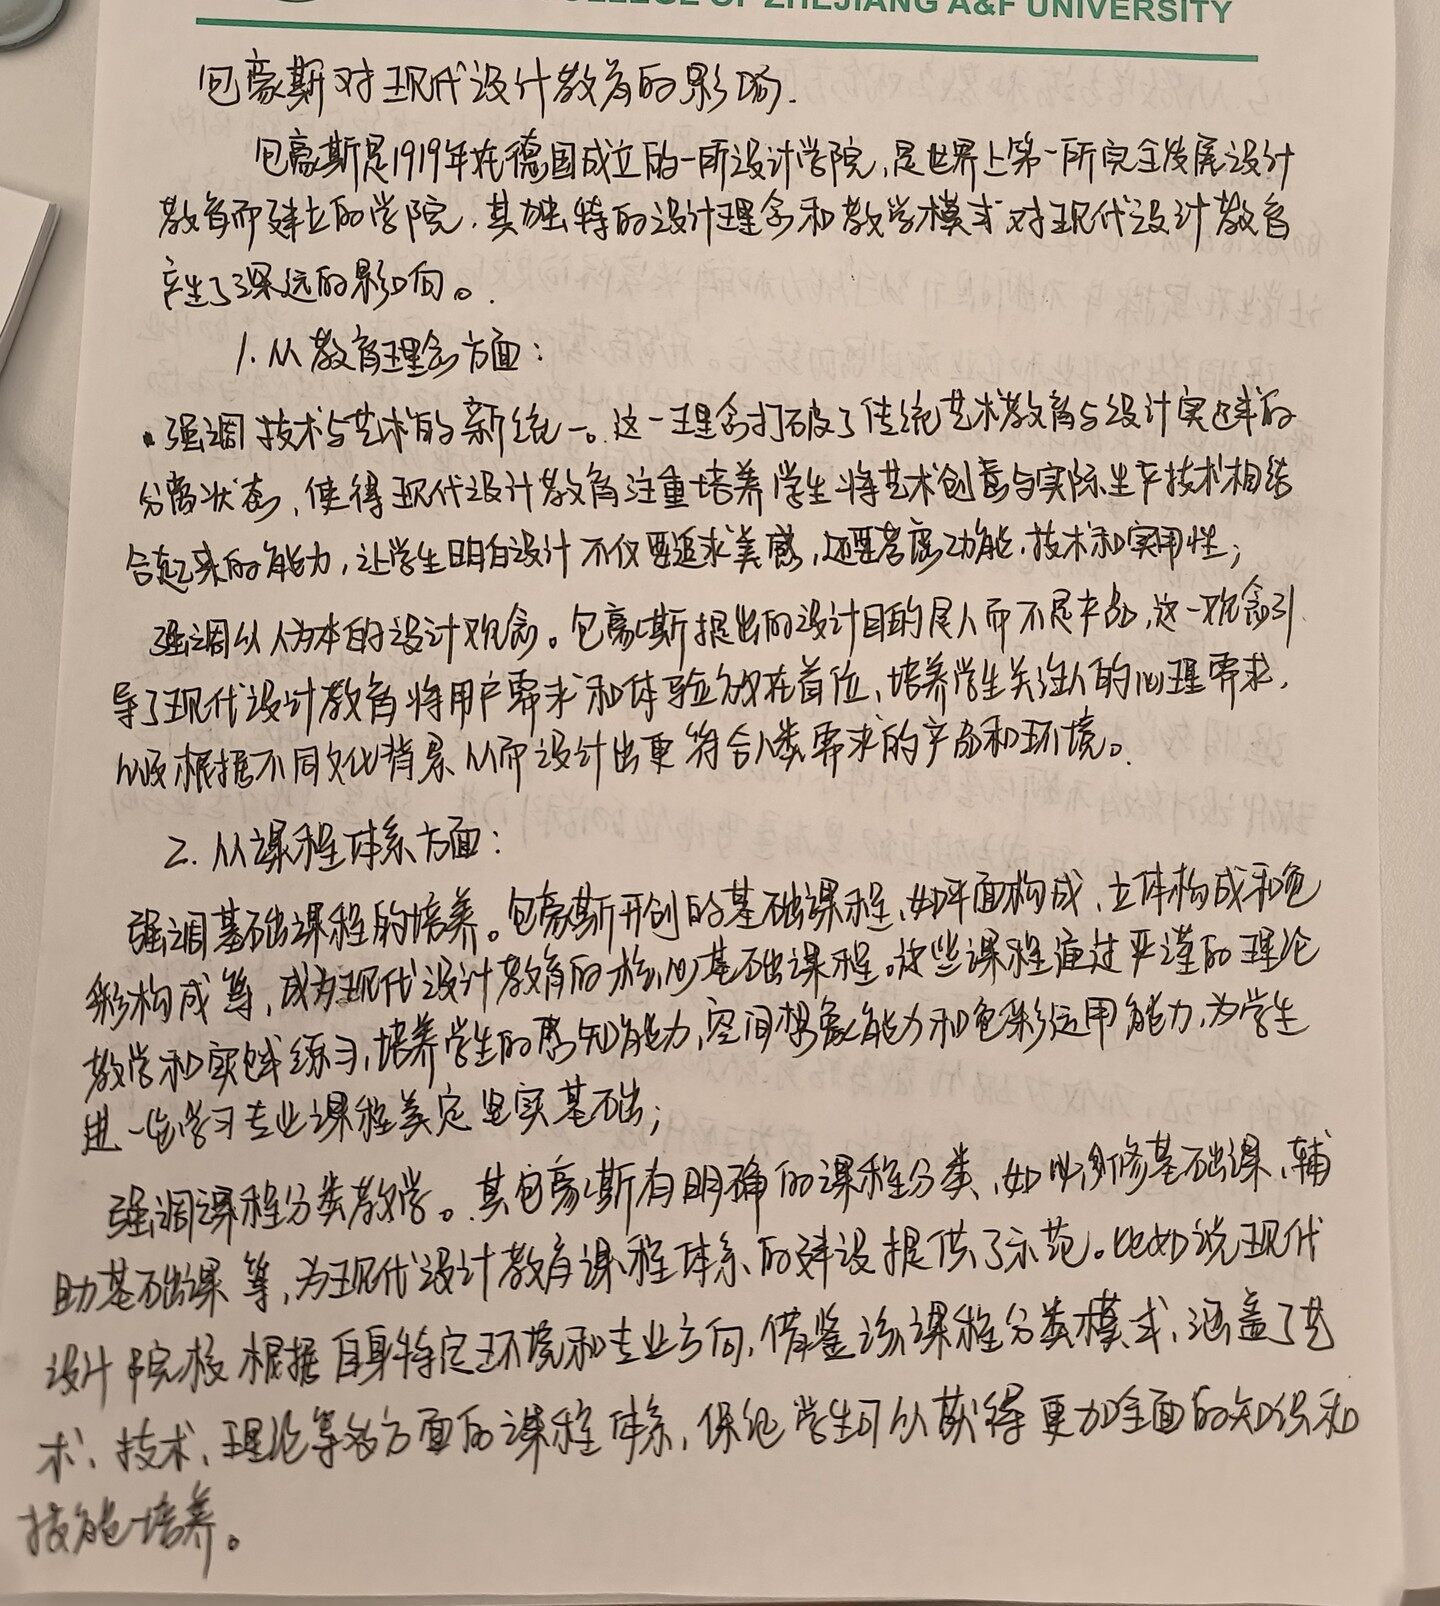 COLLEGE OF ZHEJIANG A&F UNIVERSITY
包豪斯对现代设计教育的影响.
包豪斯是1919年在德国成立的一所设计学院,是世界上第一所完全发展设计
教育而建立的学院,其独特的设计理念和教学模式对现代设计教育
产生了深远的影响。
1.从教育理念方面:
强调技术与艺术的新统一。这一理念打破了传统艺术教育与设计实践的
分离状态,使得现代设计教育注重培养学生将艺术创意与实际生产技术相结
合起来的能力,让学生明白设计不仅要追求美感,还要考虑功能、技术和实用性;
强调以人为本的设计观念。包豪斯提出的设计目的是人而不是产品,这一观念引
导了现代设计教育将用户需求和体验放在首位、培养学生关注人的心理需求,
以及根据不同文化背景从而设计出更符合人类需求的产品和环境。
2.从课程体系方面:
强调基础课程的培养。包豪斯开创的基础课程,如平面构成、立体构成和色
彩构成等,成为现代设计教育的核心基础课程。这些课程通过严谨的理论
教学和实践练习,培养学生的感知能力,空间想象能力和色彩运用能力,为学生
进一步学习专业课程奠定坚实基础;
强调课程分类教学。其包豪斯有明确的课程分类,如必修基础课、辅
助基础课等,为现代设计教育课程体系的建设提供了示范。比如说现代
设计院校根据自身特定环境和专业方向,借鉴该课程分类模式,涵盖了艺
术、技术、理论等多方面的课程体系,保证学生可以获得更加全面的知识和
技能培养。